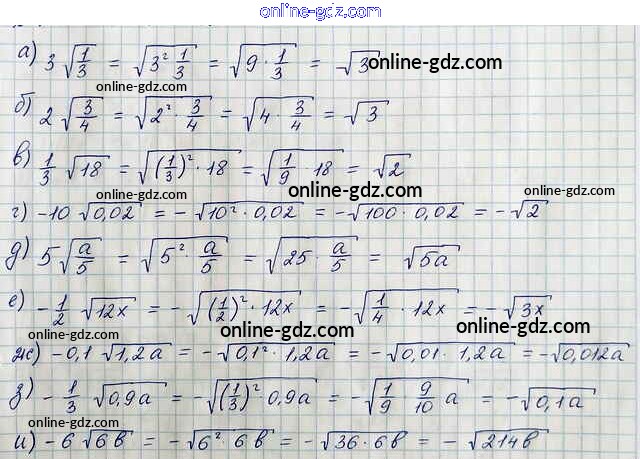 online-gdz.com
а) 3√(1/3) = √(3² 1/3) = √(9 · 1/3) = √3 online-gdz.com
online-gdz.com
б) 2√(3/4) = √(2² · 3/4) = √(4 · 3/4) = √3
в) 1/3 √18 = √((1/3)² · 18) = √(1/9 · 18) = √2
online-gdz.com online-gdz.com online-gdz.com
г) -10 √0,02 = -√(10² · 0,02) = -√(100 · 0,02) = -√2
д) 5√(a/5) = √(5² · a/5) = √(25 · a/5) = √5a
е) -1/2 √12x = -√((1/2)² · 12x) = -√(1/4 · 12x) = -√3x
online-gdz.com online-gdz.com online-gdz.com
ж) -0,1 √1,2a = -√(0,1² · 1,2a) = -√(0,01 · 1,2a) = -√0,012a
з) -1/3 √0,9a = -√((1/3)² 0,9a) = -√(1/9 9/10 a) = -√0,1a
online-gdz.com online-gdz.com online-gdz.com
и) -6 √6b = -√(6² · 6b) = -√(36 · 6b) = -√214b